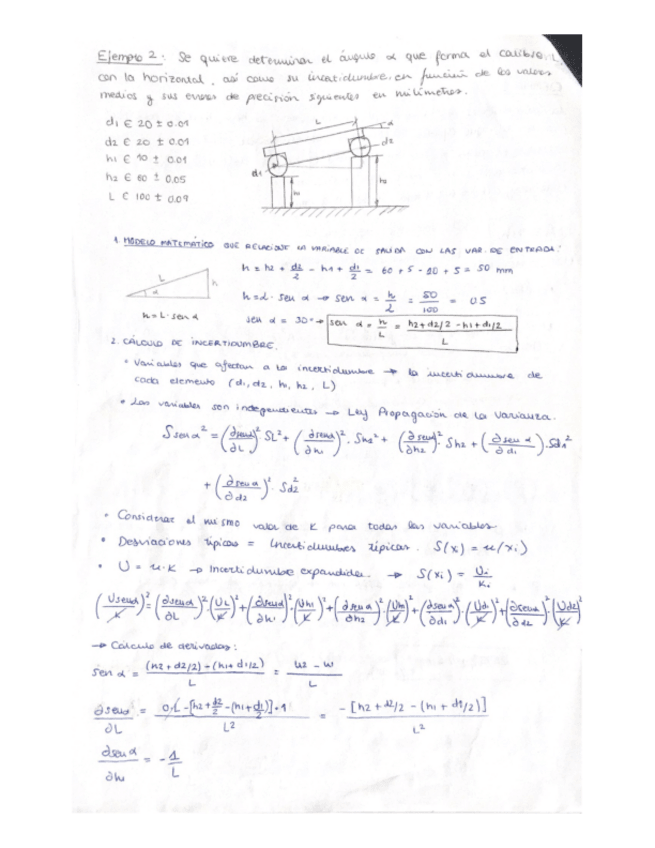 Ejemplo 2: Se quiere determinar el ángulo α que forma el calibre, L,
con la horizontal, así como su incertidumbre, en función de los valores
medios y sus errores de precisión siguientes en milímetros.
d1 ∈ 20 ± 0.01
d2 ∈ 20 ± 0.01
h1 ∈ 10 ± 0.01
h2 ∈ 60 ± 0.05
L ∈ 100 ± 0.09
L
α
d1
d2
h1
h2
1. MODELO MATEMÁTICO QUE RELACIONE LA VARIABLE DE SALIDA CON LAS VAR. DE ENTRADA:
L
h
α
h = L · sen α
h = h2 + d2/2 - h1 + d1/2 = 60 + 5 - 20 + 5 = 50 mm
h = L · sen α → sen α = h/L = 50/100 = 0.5
sen α = 30° → sen α = h/L = (h2 + d2/2 - h1 + d1/2)/L
2. CÁLCULO DE INCERTIDUMBRE.
• Variables que afectan a la incertidumbre → la incertidumbre de
cada elemento (d1, d2, h1, h2, L)
• Las variables son independientes → Ley Propagación de la Varianza.
S sen α² = (∂senα/∂L)² · SL² + (∂senα/∂h1)² · Sh1² + (∂senα/∂h2)² · Sh2 + (∂senα/∂d1) · Sd1²
+ (∂senα/∂d2)² · Sd2²
• Considerar el mismo valor de K para todas las variables
• Desviaciones típicas = Incertidumbres típicas. S(x) = u(xi)
• U = u · K → Incertidumbre expandida. → S(xi) = Ui/Ki
(Usenα/K)² = (∂senα/∂L)² · (UL/K)² + (∂senα/∂h1)² · (Uh1/K)² + (∂senα/∂h2)² · (Uh2/K)² + (∂senα/∂d1)² · (Ud1/K)² + (∂senα/∂d2)² · (Ud2/K)²
→ Cálculo de derivadas:
sen α = ((h2 + d2/2) - (h1 + d1/2))/L = (u2 - u1)/L
∂senα/∂L = (0·L - [h2 + d2/2 - (h1 + d1/2)] · 1)/L² = -[h2 + d2/2 - (h1 + d1/2)]/L²
∂senα/∂h1 = -1/L